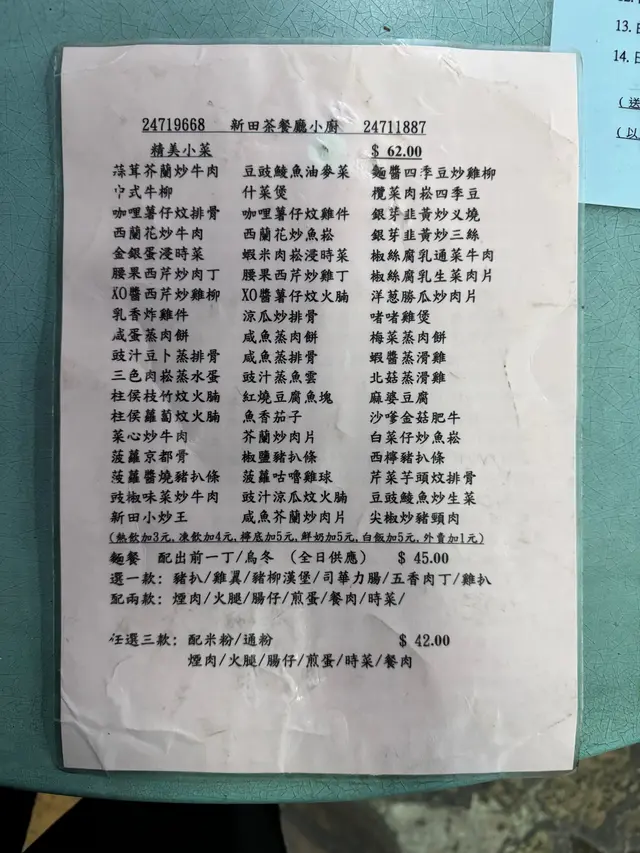 24719668 新田茶餐廳小廚 24711887
精美小菜 $ 62.00
蒜茸芥蘭炒牛肉 豆豉鯪魚油麥菜 麵醬四季豆炒雞柳
中式牛柳 什菜煲 欖菜肉崧四季豆
咖哩薯仔炆排骨 咖哩薯仔炆雞件 銀芽韭黃炒义燒
西蘭花炒牛肉 西蘭花炒魚崧 銀芽韭黃炒三絲
金銀蛋浸時菜 蝦米肉崧浸時菜 椒絲腐乳通菜牛肉
腰果西芹炒肉丁 腰果西芹炒雞丁 椒絲腐乳生菜肉片
XO醬西芹炒雞柳 XO醬薯仔炆火腩 洋蔥勝瓜炒肉片
乳香炸雞件 涼瓜炒排骨 啫啫雞煲
咸蛋蒸肉餅 咸魚蒸肉餅 梅菜蒸肉餅
豉汁豆卜蒸排骨 咸魚蒸排骨 蝦醬蒸滑雞
三色肉崧蒸水蛋 豉汁蒸魚雲 北菇蒸滑雞
柱侯枝竹炆火腩 紅燒豆腐魚塊 麻婆豆腐
柱侯蘿蔔炆火腩 魚香茄子 沙嗲金菇肥牛
菜心炒牛肉 芥蘭炒肉片 白菜仔炒魚崧
菠蘿京都骨 椒鹽豬扒條 西檸豬扒條
菠蘿醬燒豬扒條 菠蘿咕嚕雞球 芹菜芋頭炆排骨
豉椒味菜炒牛肉 豉汁涼瓜炆火腩 豆豉鯪魚炒生菜
新田小炒王 咸魚芥蘭炒肉片 尖椒炒豬頸肉
(熱飲加3元,凍飲加4元,檸底加5元,鮮奶加5元,白飯加5元,外賣加1元)
麵餐 配出前一丁/烏冬 (全日供應) $ 45.00
選一款: 豬扒/雞翼/豬柳漢堡/司華力腸/五香肉丁/雞扒
配兩款: 煙肉/火腿/腸仔/煎蛋/餐肉/時菜/
任選三款: 配米粉/通粉 $ 42.00
煙肉/火腿/腸仔/煎蛋/時菜/餐肉
13.
14.
(送
(以